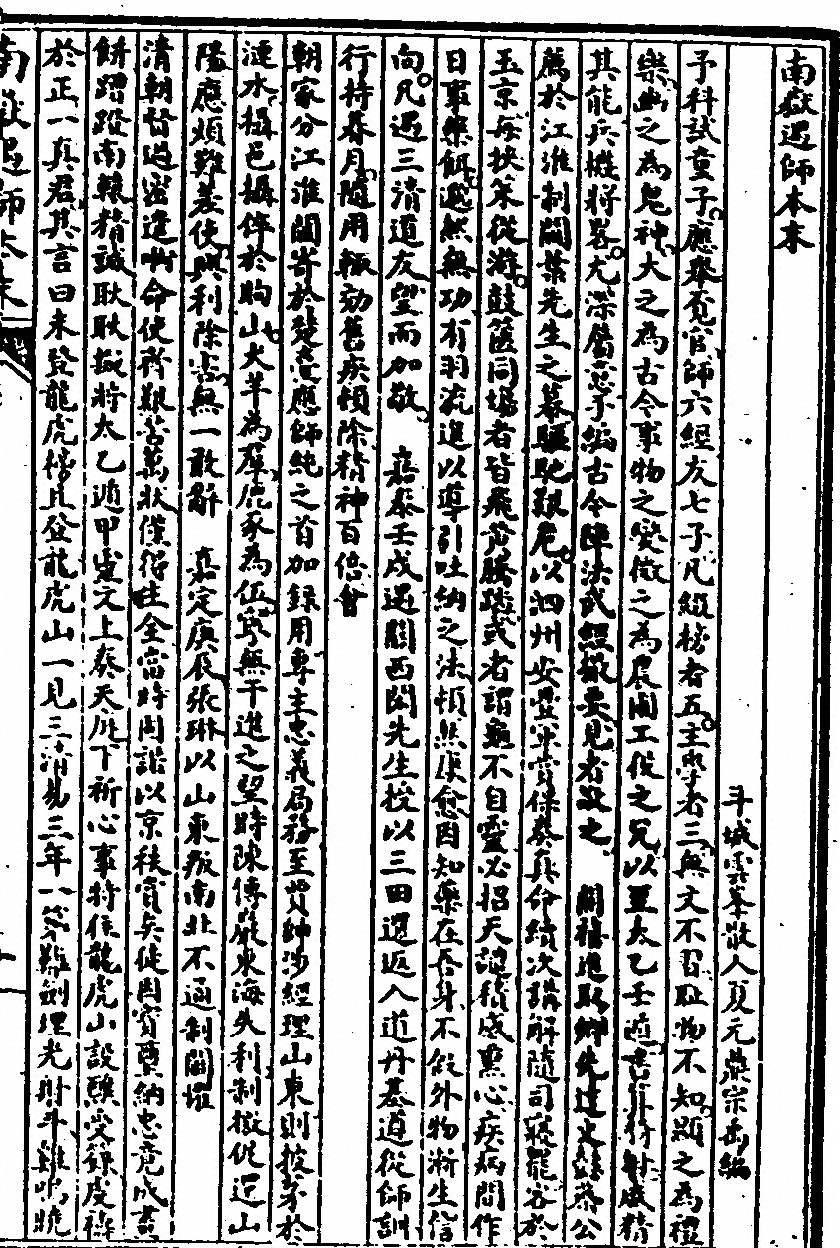 南嶽遇師本末
斗城雲峯散人夏元鼎宗禹編
予科試童子應舉覔官師六經友七子凡綴榜者五主學者三無文不習耻物不知顯之為禮
樂幽之為鬼神大之為古今事物之變微之為農圃工伎之冗以至太乙壬遁書算符射咸精
其能兵機將畧尤深屬意予編古今陣法武經撮要見者敬之 開禧進取鄉先達史蘇蔡公
薦於江淮制閫葉先生之幕驅馳艱危以泗州安豐軍賞保奏真命續次講解隨司寢罷客於
玉京每挾策從游鼓篋同塲者皆飛黄騰踏或者謂龜不自靈必招天譴積成熏心疾病間作
日事藥餌邈然無功有羽流進以導引吐納之法頓然康愈因知藥在吾身不假外物漸生信
向凡遇三清道友望而加敬 嘉泰壬戍遇關西閔先生授以三田還返入道丹基遵從師訓
行持朞月隨用輒効舊疾頓除精神百倍會
朝家分江淮閫寄於楚臺應師純之首加録用專主忠義局務至賈帥涉經理山東則披茅於
漣水攝邑攝倅於朐山犬羊為羣鹿豕為伍寧無干進之望時陳傳嚴東海失利制檄促還山
陽應煩難差使興利除害無一敢辭 嘉定庚辰張琳以山東叛南北不通制閫擢
清朝督過密遣 命使齊艱苦萬狀僅得生全當時周諮以京秩賞矣徒因賓贊納忠竟成畫
餅蹭蹬南轅精誠耿耿擬將太乙遁甲靈文上奏天庭下祈心事特倅龍虎山設醮受籙虔禱
於正一真君其言曰未登龍虎榜且登龍虎山一見三清易三年一第難劒埋光射斗雞鳴曉
南嶽遇師本末